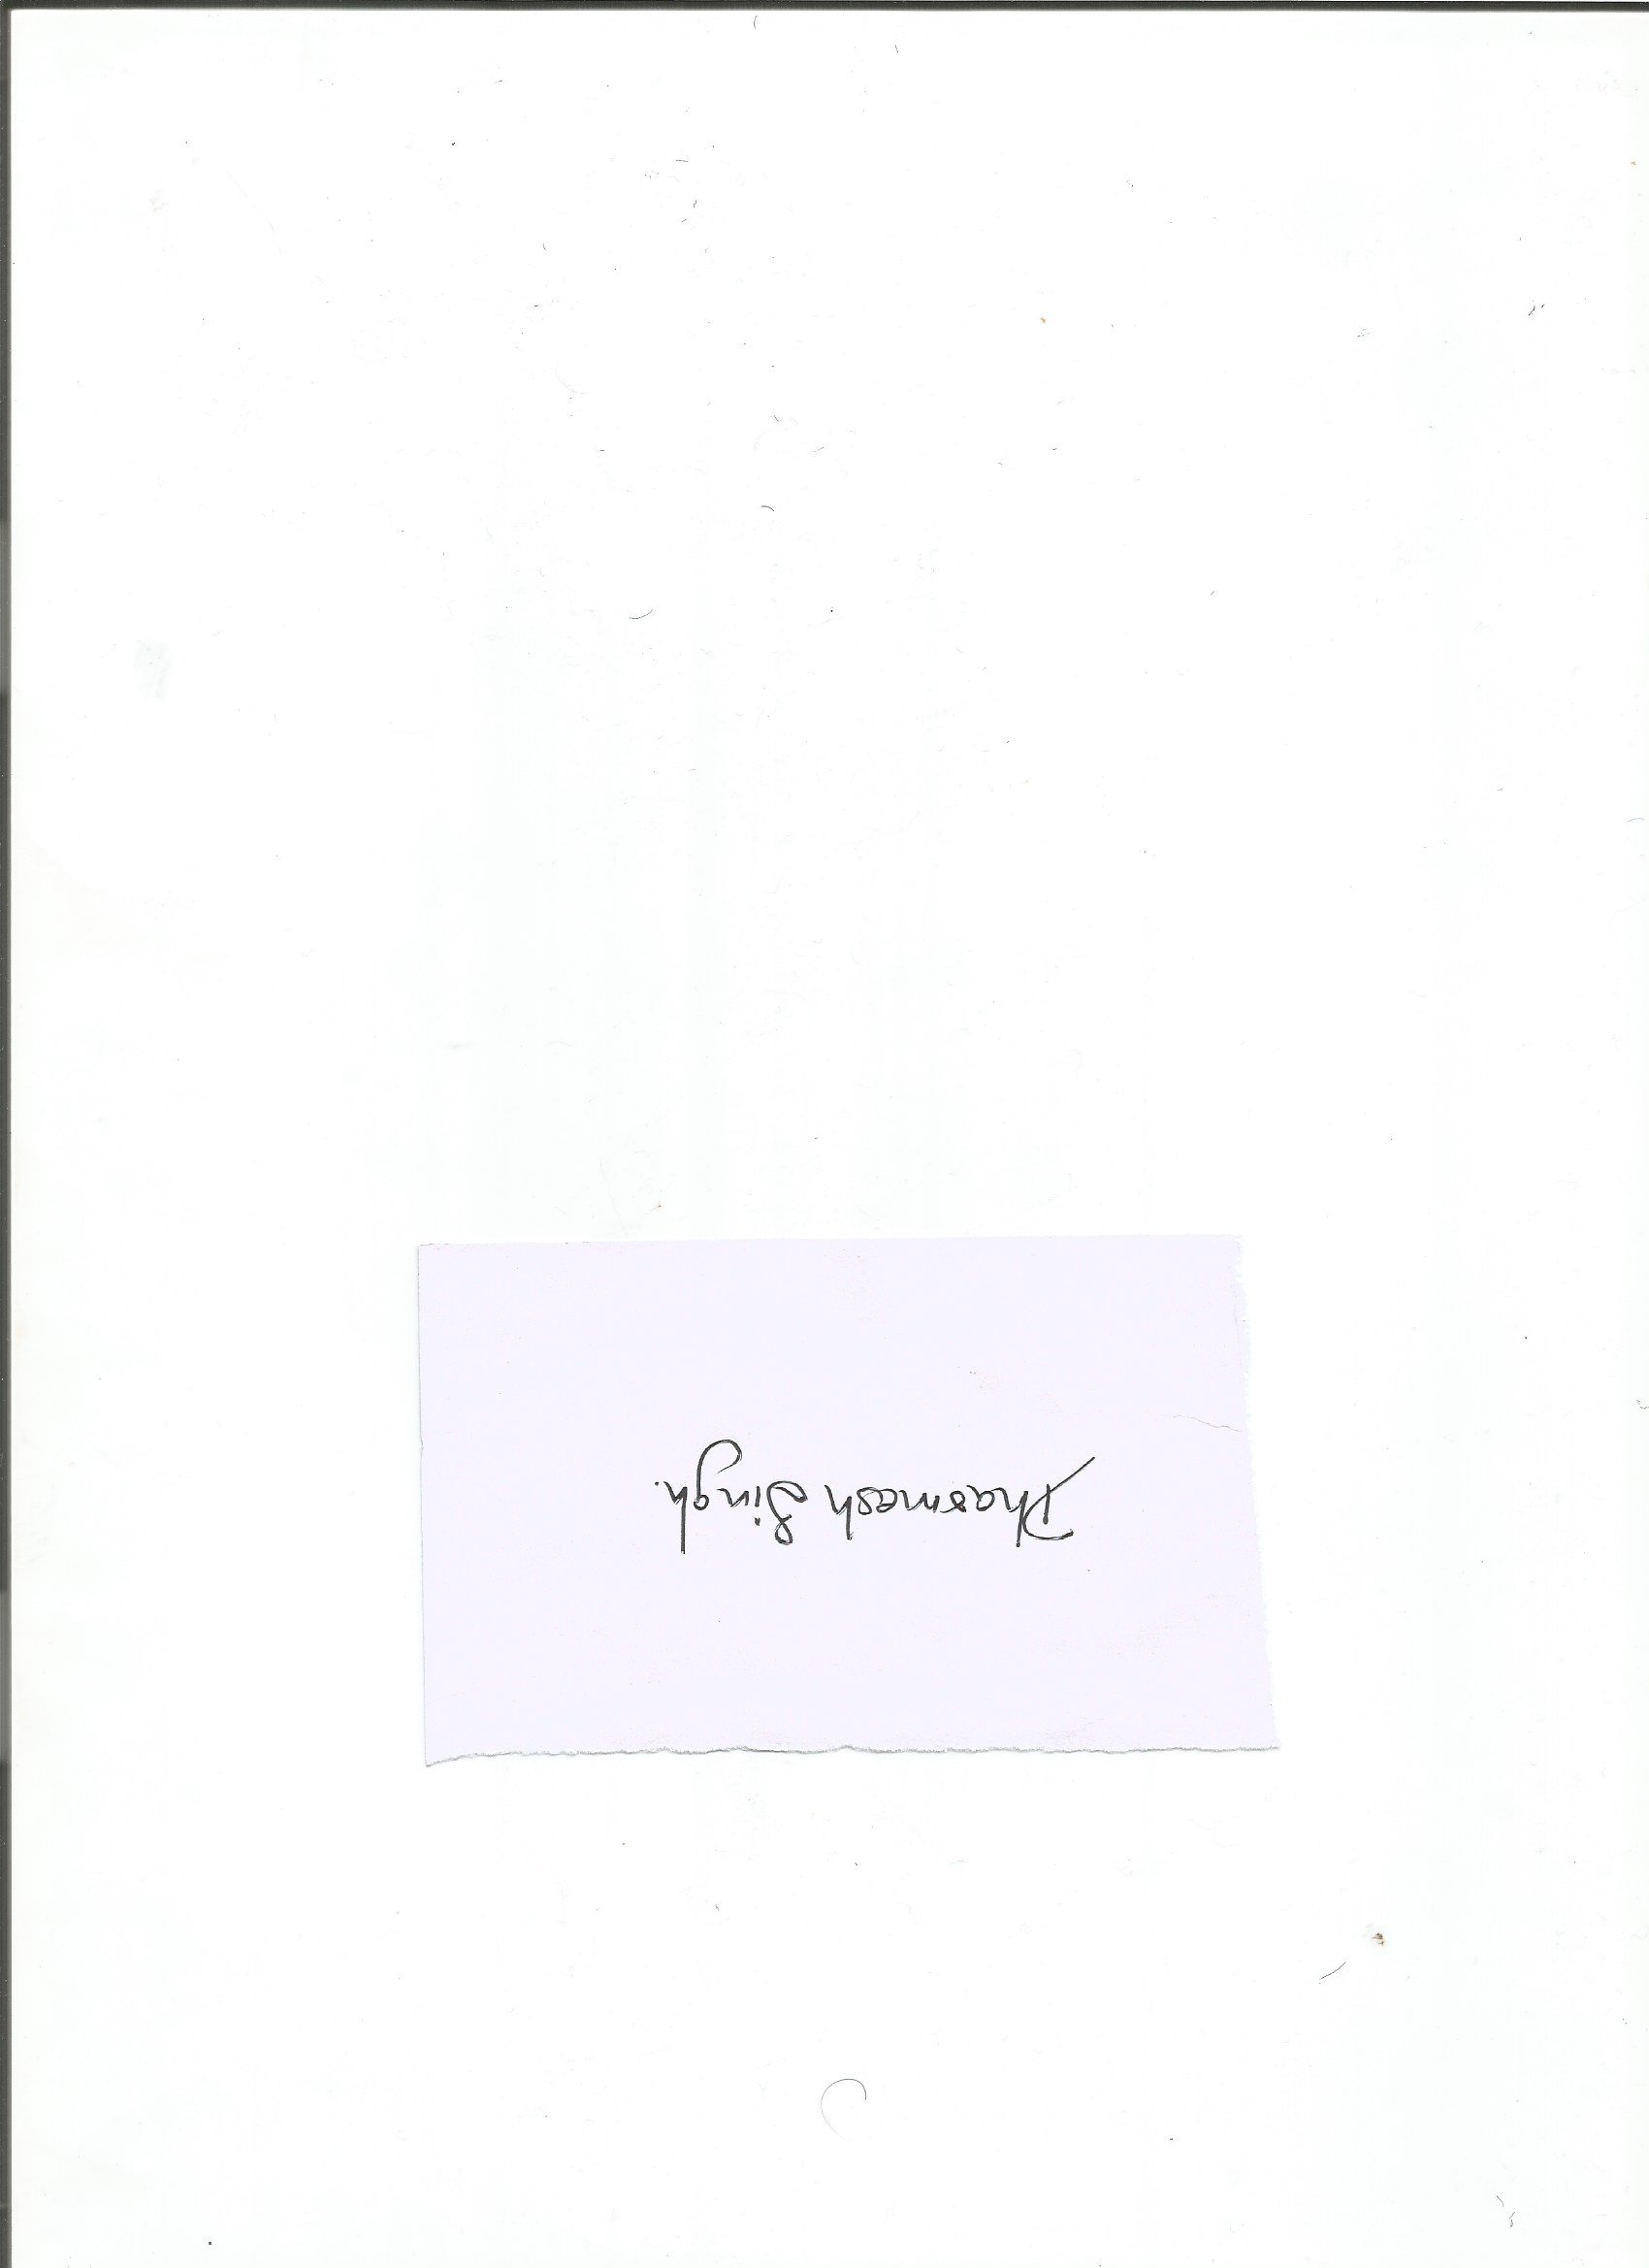 Dharmesh Singh.